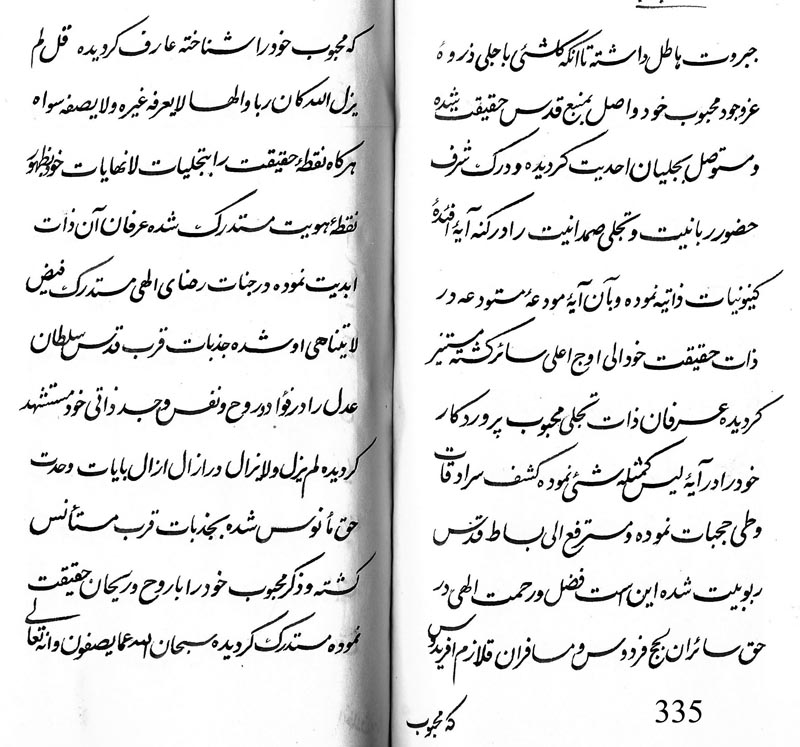 جبروت هاطل داشته تا آنکه کلشئی با جلی ذروهٔ
عز وجود محبوب خود واصل بمنبع قدس حقیقت شده
و مستوصل بجلیان احدیت کردیده و درک شرف
حضور ربانیت و تجلی صمدانیت را در کنه آیهٔ افئدهٔ
کینونیات ذاتیه نموده و بآن آیهٔ مودعهٔ مستودعه در
ذات حقیقت خود الی اوج اعلی سائر کشته مستنیر
کردیده عرفان ذات تجلی محبوب پروردکار
خود را در آیهٔ لیس کمثله شئی نموده کشف سرادقات
وطی حجبات نموده و مسترفع الی بساط قدس
ربوبیت شده این است فضل و رحمت الهی در
حق سائران لجج فردوس و مسافران قلازم افریدوس
که محبوب
335
که محبوب خود را شناخته عارف کردیده قل لم
یزل الله کان ربا والها لا یعرفه غیره ولا یصفه سواه
هرکاه نقطهٔ حقیقت را بتجلیات لانهایات خود بظهور
نقطهٔ هویت مستدرک شده عرفان آن ذات
ابدیت نموده در جنات رضای الهی مستدرک فیض
لایتناهی او شده جذبات قرب قدس سلطان
عدل را در فؤاد و روح و نفس و جسد ذاتی خود مستشهد
کردیده لم یزل ولا یزال در ازال ازال بایات وحدت
حق مأنوس شده بجذبات قرب مستأنس
کشته و ذکر محبوب خود را با روح و ریحان حقیقت
نموده مستدرک کردیده سبحان الله عما یصفون وانه تعالی